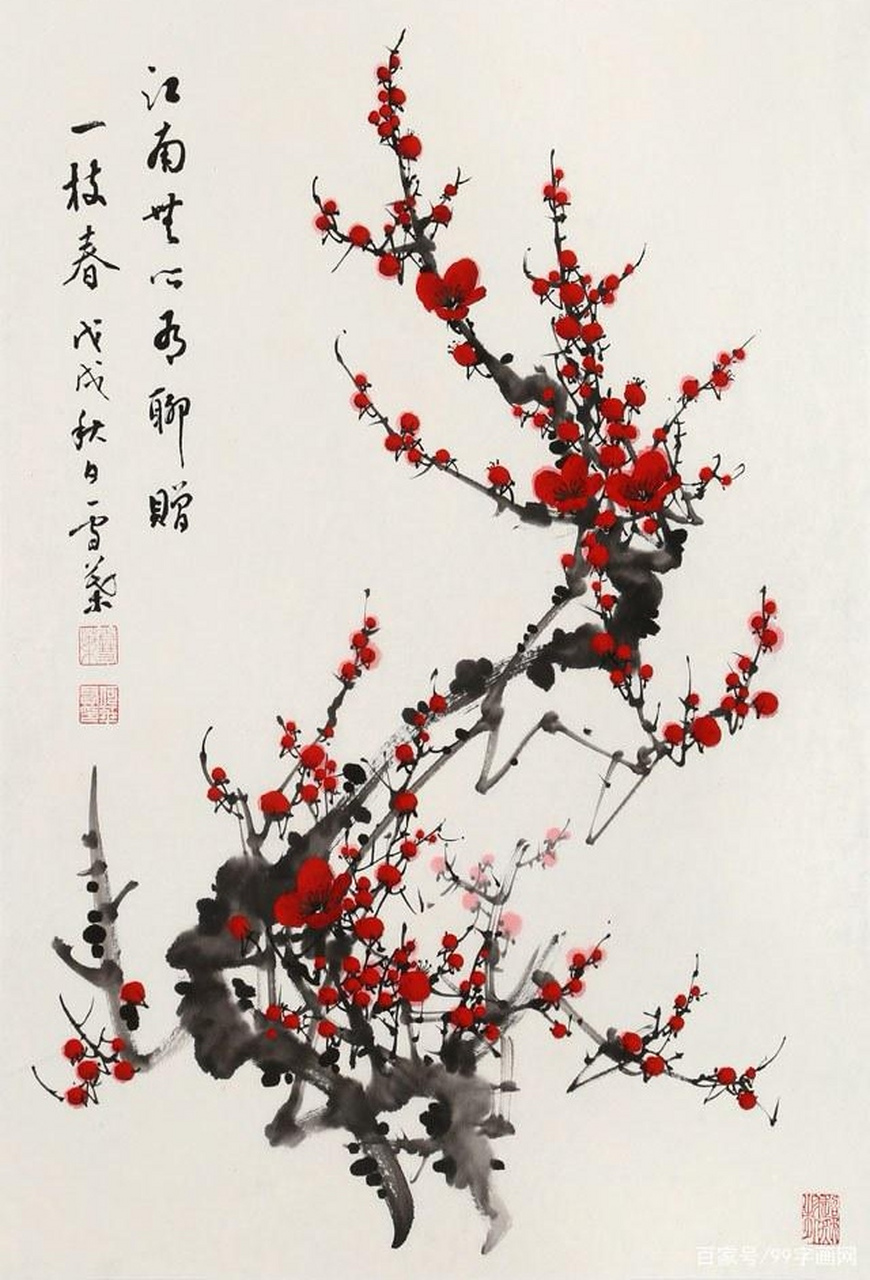 江南無所有聊贈
一枝春 戊戌秋日雪蘂
百家号/99字画网